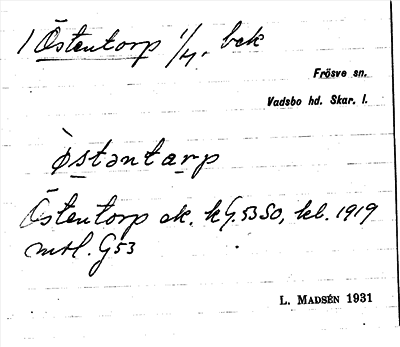 1 Östentorp 1/4, bek
Frösve sn.
Vadsbo hd. Skar. l.
ɵ̀stəntarp
Östentorp ek. kG.53SO, kl. 1919
mtl. G53
L. MADSÉN 1931